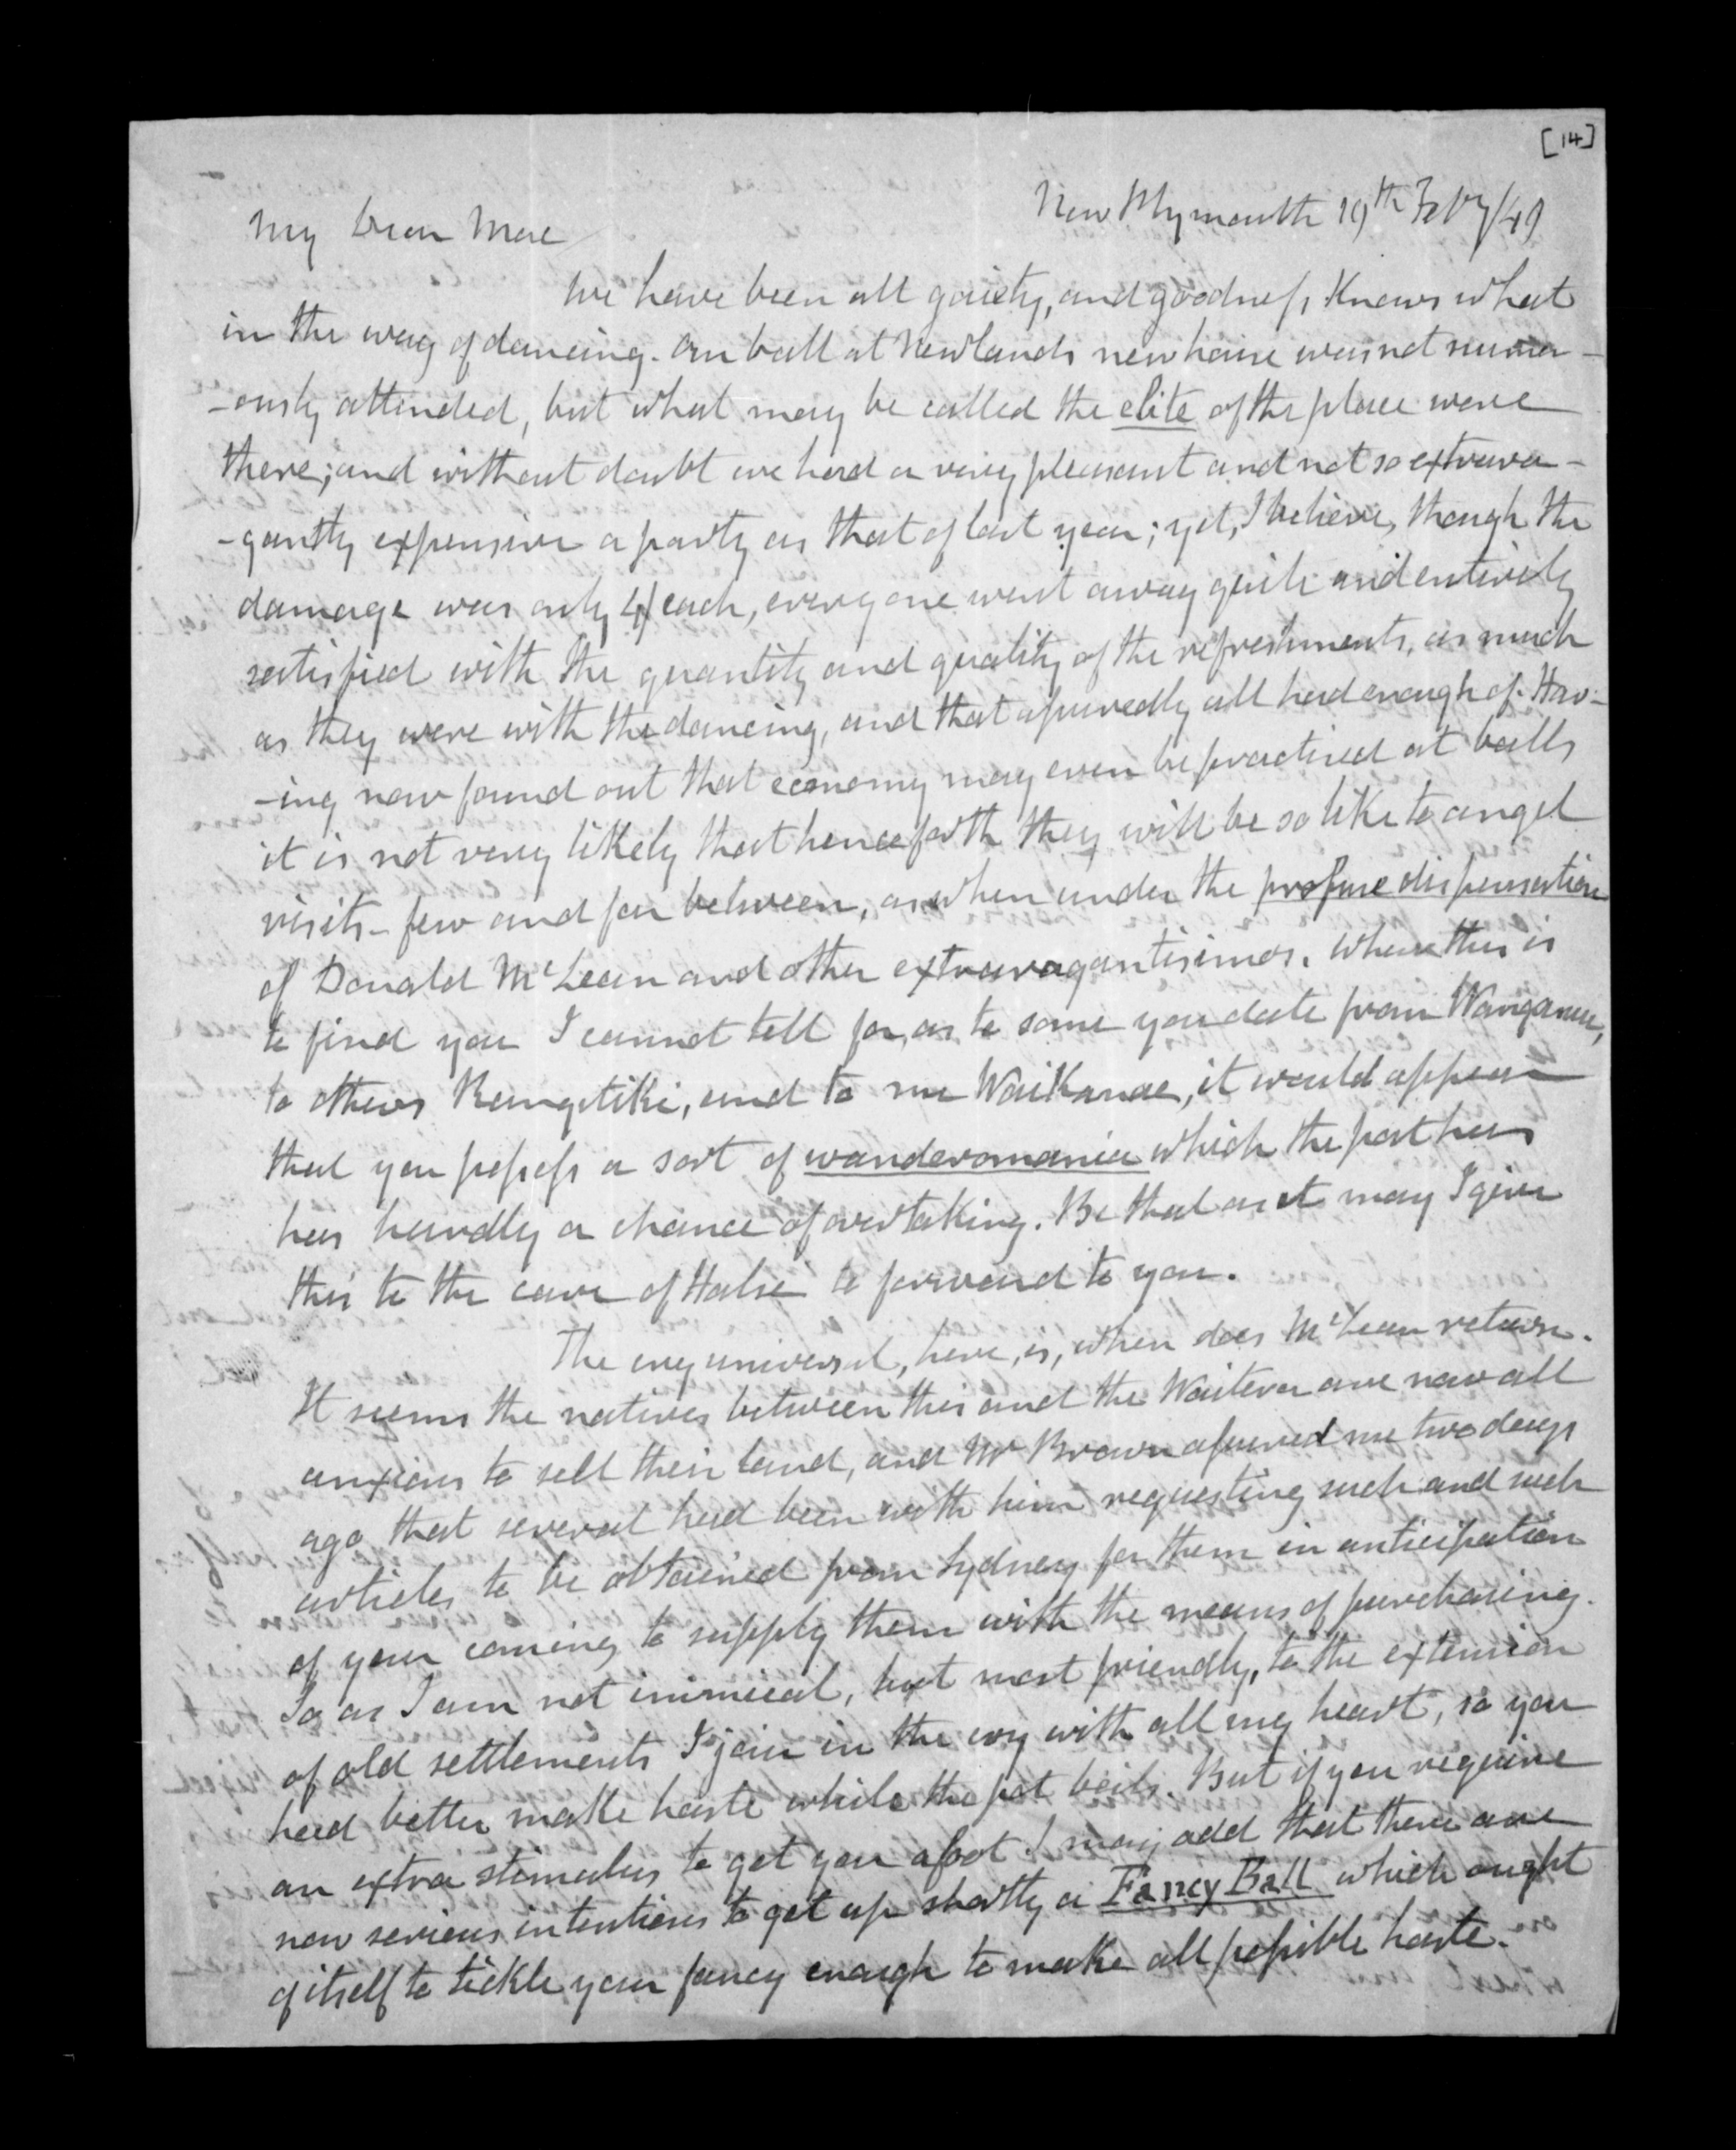 [14]
New Plymouth 19th Feby/49
My Dear Mac
We have been all gaiety, and goodness knows what
in the way of dancing. Our ball at Newlands new house was not numer-
-ously attended, but what may be called the elite of the place were
there; and without doubt we had a very pleasant and not so extrava-
-gantly expensive a party as that of last year; yet, I believe, though the
damage was only 4/ each, everyone went away quite and entirely
satisfied with the quantity and quality of the refreshments, as much
as they were with the dancing, and that assuredly all had enough of. Hav-
-ing now found out that economy may even be practised at balls
it is not very likely that henceforth they will be so like to angel
visits - few and far between, as when under the profuse dispensation
of Donald McLean and other extravagantisimos. Where this is
to find you I cannot tell for, as to some you date from Wanganui,
to others Rangitiki, and to me Waikanae, it would appear
that you possess a sort of wanderomania which the post has
has hardly a chance of overtaking. Be that as it may I give
this to the care of Halse to forward to you.
The cry universal, here, is, when does McLean return.
It seems the natives between this and the Waitera are now all
anxious to sell their land, and Mr Brown assured me two days
ago that several had been with him requesting such and such
articles to be obtained from Sydney for them in anticipation
of your coming to supply them with the means of purchasing.
So as I am not inimical, but most friendly, to the extension
of old settlements I join in the cry with all my heart, so you
had better make haste while the pot boils. But if you require
an extra stimulus to get you afoot I may add that there are
now serious intentions to get up shortly a Fancy Ball which ought
of itself to tickle your fancy enough to make all possible haste.